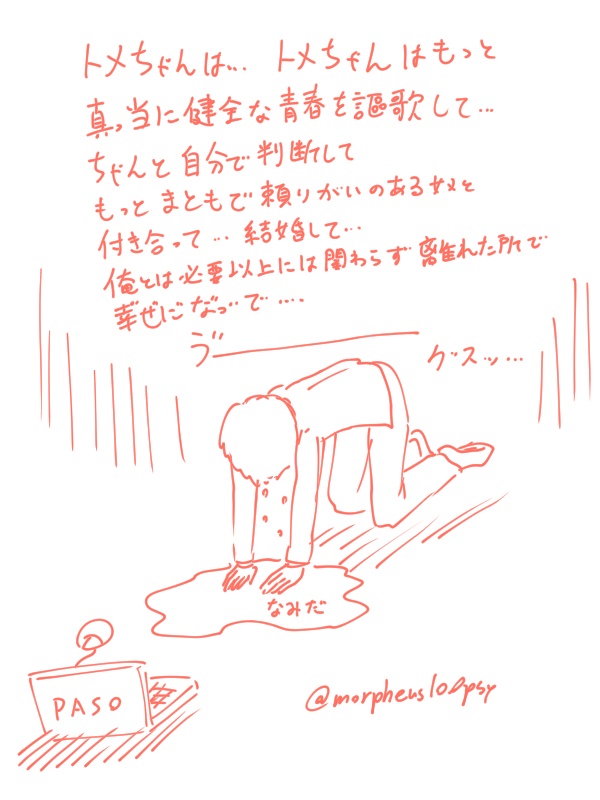 トメちゃんは… トメちゃんはもっと
真っ当に健全な青春を謳歌して…
ちゃんと自分で判断して
もっとまともで頼りがいのある奴と
付き合って… 結婚して…
俺とは必要以上には関わらず 離れた所で
幸ぜになっで‥‥
ゔ――
グスッ…
なみだ
PASO